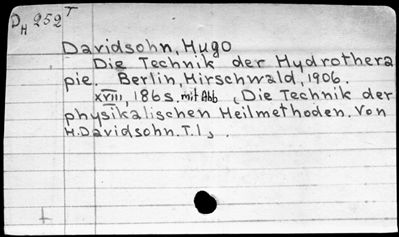 D H 252 T
Davidsohn, Hugo
Die Technik der Hydrothera
pie. Berlin, Hirschwald, 1906.
XVIII, 186s. mit Abb (Die Technik der
physikalischen Heilmethoden. Von
H. Davidsohn. T. 1,